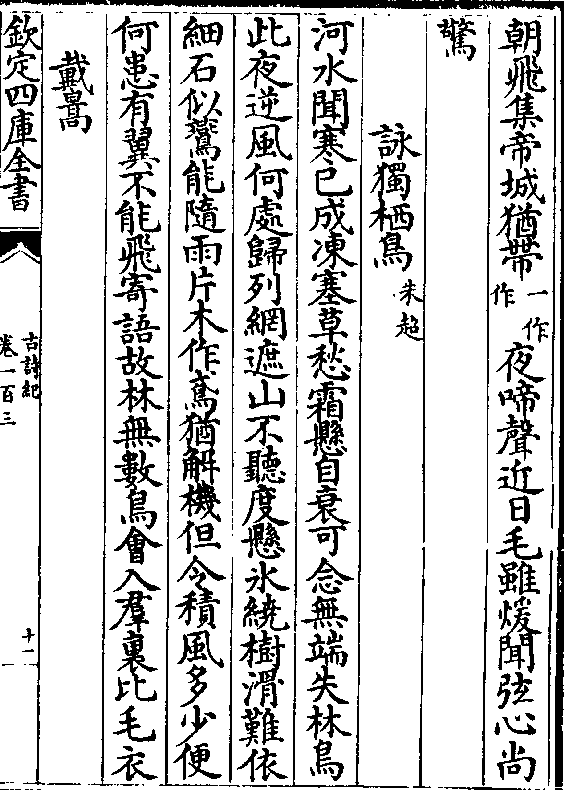 朝飛集帝城猶帶一作作夜啼聲近日毛雖煖聞弦心尚
驚
詠獨栖鳥 朱超
河水聞寒已成凍塞草愁霜懸自衰可念無端失林鳥
此夜逆風何處歸列網遮山不聽度懸氷繞樹滑難依
細石似鷰能隨雨片木作鳶猶解機但令積風多少便
何患有翼不能飛寄語故林無數鳥會入羣裏比毛衣
戴暠
欽定四庫全書
古詩紀
卷一百三
十一